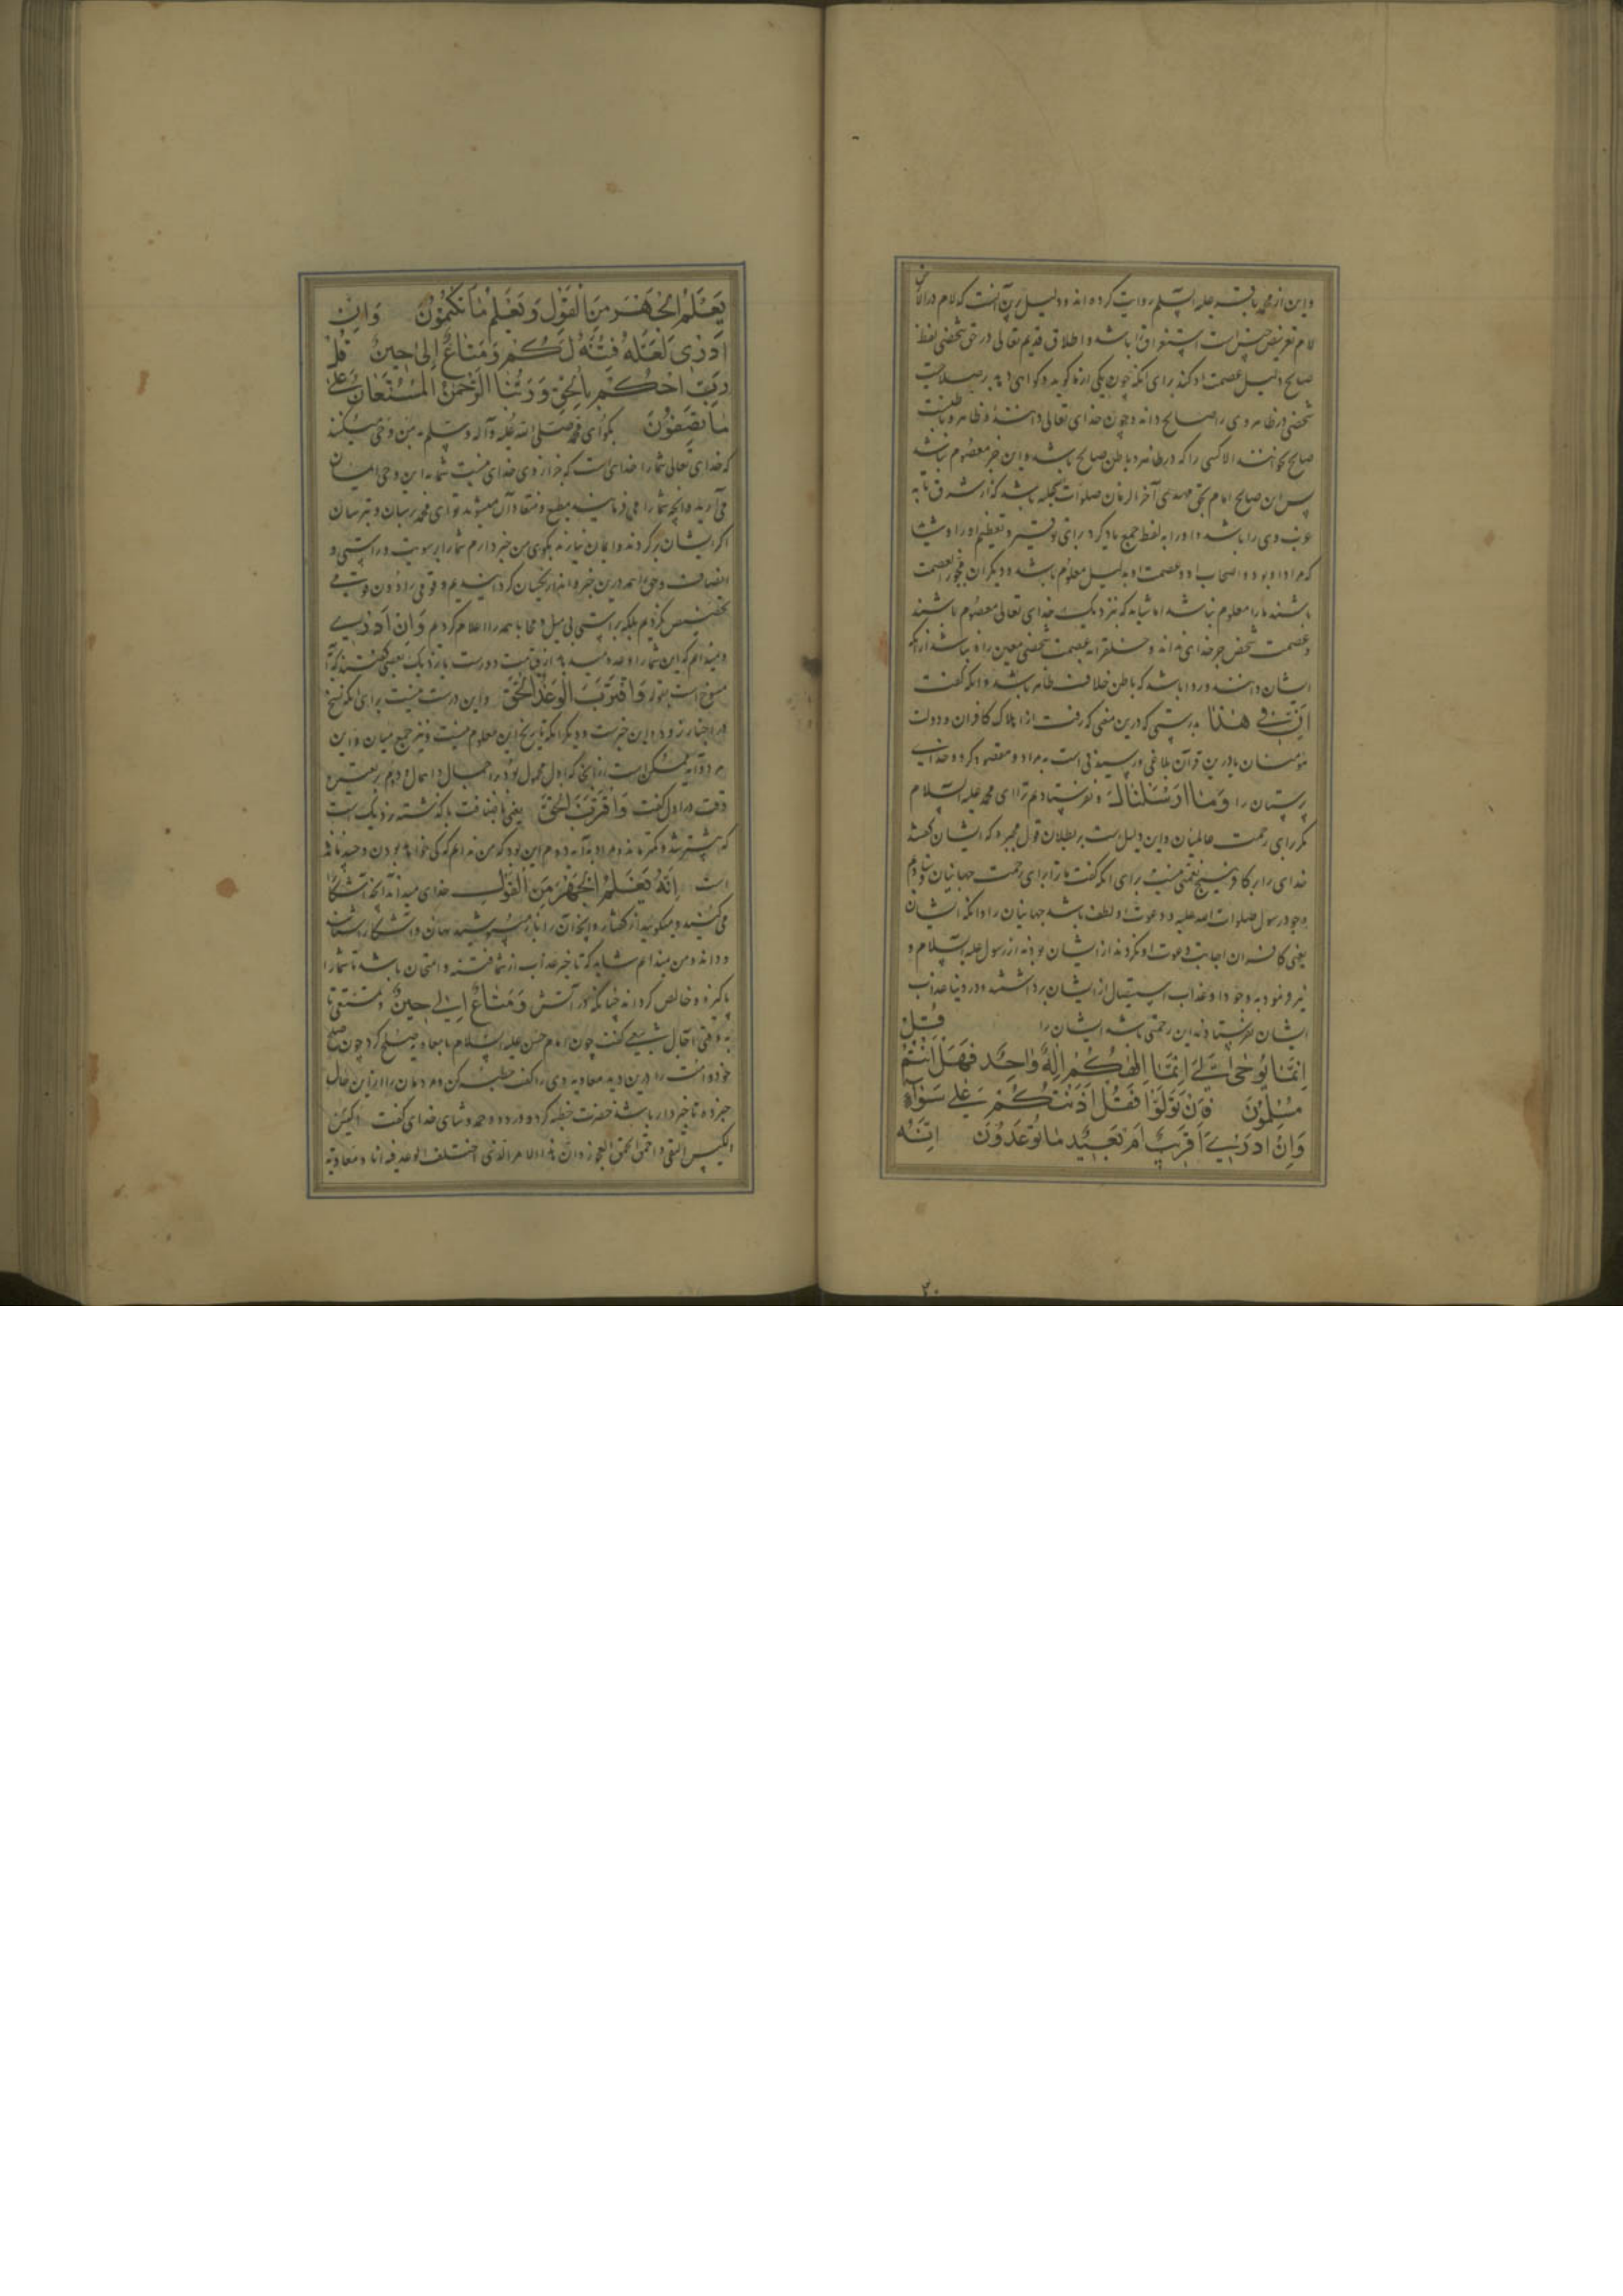 و این از محمد باقر علیه السلم روایت کرده اند و دلیل برین آنست که لام در الارض
لام تعریف جنس است استغراق را باشد و اطلاق قدیم تعالی در حق شخصی لفظ
صالح دلیل عصمت او کند برای آنکه چون یکی از ما گوید و گواهی دهد بر صلاحیت
شخصی در ظاهر وی را صالح داند و چون خدای تعالی داننده ظاهر و باطنست
صالح نخواند الا کسی را که در ظاهر و باطن صالح باشد و این جز معصوم نباشد
پس این صالح امام بحق مهدی آخر الزمان صلوات الله علیه باشد که از شرق تا به
غرب وی را باشد و او را به لفظ جمع یاد کرد برای توقیر و تعظیم او را و شاید
که مراد او بود و اصحاب او و عصمت او بدلیل معلوم باشد و دیگران
باشند ما را معلوم نباشد اما شاید که بنزدیک خدای تعالی معصوم باشند
و عصمت شخص جز خدای نداند و خلق را به عصمت شخصی معین راه نباشد از آنکه
ایشان دانند و روا باشد که باطن خلاف ظاهر باشد و آنکه گفت
اِنَّ فی هذا بدرستی که درین معنی که رفت از هلاک کافران و دولت
مؤمنان یا درین قرآن بلاغی و رسیدنی است به مراد و مقصود گروه خدای
پرستان را وَمَا اَرْسَلْنَاکَ و نفرستادیم ترا ای محمد علیه السلام
مگر برای رحمت عالمیان و این دلیل است بر بطلان قول مجبره که ایشان گفتند
خدای را بر کافر هیچ نعمتی نیست برای آنکه گفت ما ترا برای رحمت جهانیان فرستادیم
وجود رسول صلوات الله علیه و دعوت او لطف باشد جهانیان را و آنکه ایشان
یعنی کافران اجابت دعوت او نکردند از ایشان بود نه از رسول علیه السلام و
نیز فرمود به وجود او عذاب استیصال از ایشان برداشتند و در دنیا عذاب
ایشان نفرستادند این رحمتی باشد ایشان را قُلْ
اِنَّمَا یُوحٰی اِلَیَّ اَنَّمَا اِلٰهُکُمْ اِلٰهٌ وَاحِدٌ فَهَلْ اَنْتُمْ
مُسْلِمُونَ فَاِنْ تَوَلَّوْا فَقُلْ اٰذَنْتُکُمْ عَلٰی سَوَآءٍ
وَاِنْ اَدْرِی اَقَرِیبٌ اَمْ بَعِیدٌ مَا تُوعَدُونَ اِنَّهُ
۲۰
یَعْلَمُ الْجَهْرَ مِنَ الْقَوْلِ وَیَعْلَمُ مَا تَکْتُمُونَ وَاِنْ
اَدْرِی لَعَلَّهُ فِتْنَةٌ لَکُمْ وَمَتَاعٌ اِلٰی حِینٍ قُلْ
رَبِّ احْکُمْ بِالْحَقِّ وَرَبُّنَا الرَّحْمٰنُ الْمُسْتَعَانُ عَلٰی
مَا تَصِفُونَ بگو ای محمد صلی الله علیه و آله و سلم به من وحی میکنند
که خدای تعالی شما را خدایست که جز از وی خدای نیست شما به این وحی ایمان
می آرید و آنچه شما را می فرمایند مطیع و منقاد آن میشوید تو ای محمد برسان و بترسان
اگر ایشان برگردند و ایمان نیارند بگوی من خبر دارم شما را بر سویت و راستی و
انصاف و حق همه درین خبر و انذار یکسان گردانیدیم و قومی را دون قومی
تخصیص نکردیم بلکه براستی بی میل و محابا همه را اعلام کردم وَاِنْ اَدْرِی
و ندانم که این شما را وعده میدهند از قیامت دورست یا نزدیک بعضی گفتند که آیه
منسوخ است بقوله وَاقْتَرَبَ الْوَعْدُ الْحَقُّ و این درست نیست برای آنکه نسخ
در اخبار نرود و این خبرست و دیگر آنکه تاریخ این معلوم نیست و نیز جمع میان این
هر دو آیه ممکن است از آنجا که اول محمول بود بر اجمال و اهمال و دوم بر تعیین و
وقت در اول گفت وَاقْتَرَبَ الْحَقُّ یعنی باضافت با گذشته نزدیک است
که بیشتر شد و کمتر ماند و مراد به آیه دوم این بود که من ندانم که کی خواهد بودن و چند مانده
است اِنَّهُ یَعْلَمُ الْجَهْرَ مِنَ الْقَوْلِ خدای میداند آنچه آشکارا
می کنید و میگوئید از گفتار و آنچه آن را باز پوشید نهان و آشکار شناسد
و داند و من ندانم شاید که تاخیر عذاب از شما فتنه و امتحان باشد تا شما را
پاکیزه و خالص گرداند چنانکه زر آتش وَمَتَاعٌ اِلٰی حِینٍ و تمتعی تا
به وقتی آجال شعبی گفت چون امام حسن علیه السلام با معاویه صلح کرد چون صلح
خود و امت را درین دید معاویه وی را گفت خطبه کن و مردمان را ازین حال
خبر ده تا خبردار باشند حضرت خطبه کرد و درود و حمد و ثنای خدای گفت اکیس
الکیس التقی و احمق الحمق الفجور و ان هذا الامر الذی اختلف فیه انا و معاویه